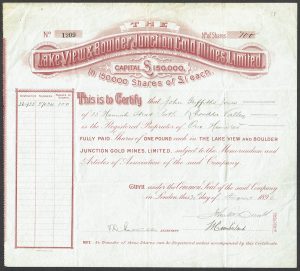 THE
No 1209
No. of Shares 100
Lake View & Boulder Junction Gold Mines, Limited.
CAPITAL £150,000,
In 150000 Shares of £1 each.
This is to Certify that John Griffiths Jones
of 13 Hannah Street Porth Rhondda Valley
is the Registered Proprietor of One Hundred
FULLY PAID Shares of ONE POUND each in THE LAKE VIEW AND BOULDER
JUNCTION GOLD MINES, LIMITED, subject to the Memorandum and
Articles of Association of the said Company.
GIVEN under the Common Seal of the said Company
in London, this day of 1896
NO Transfer of these Shares can be Registered unless accompanied by this Certificate.